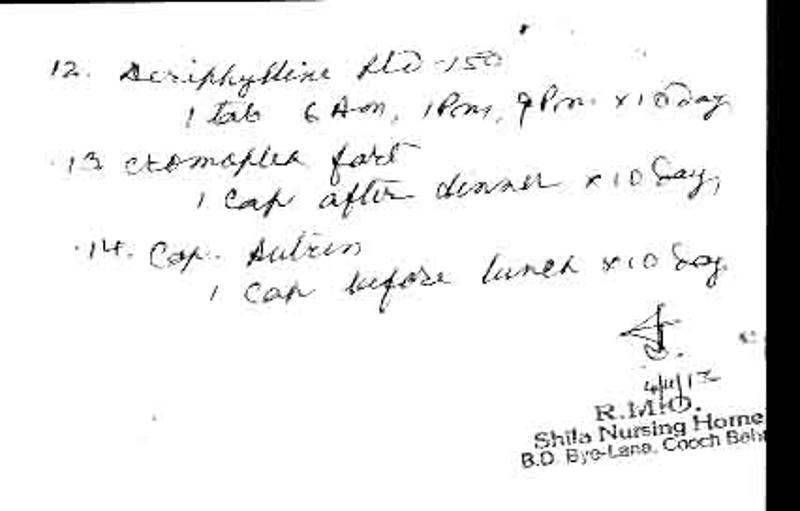 12. Deriphylline Rtd-150
1 tab 6 Am, 1Pm, 9Pm. x 10 day
13 ctomaplex fort
1 Cap after dinner x 10 day,
14. Cap. Autrin
1 cap before lunch x 10 day.
4/11/12
R.M.O.
Shila Nursing Home
B.D. Bye-Lane, Cooch Beh